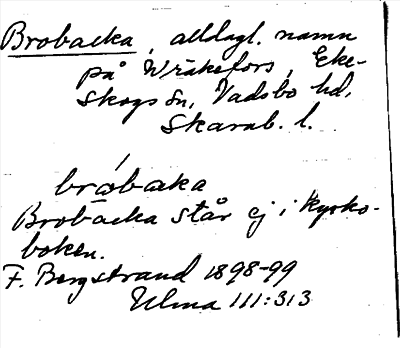 Brobacka, alldagl. namn
på Wråkefors, Eke-
skogs sn, Vadsbo hd,
Skarab. l.
bròbaka
Brobacka står ej i kyrko-
boken.
F. Bergstrand 1898-99
Ulma 111:313